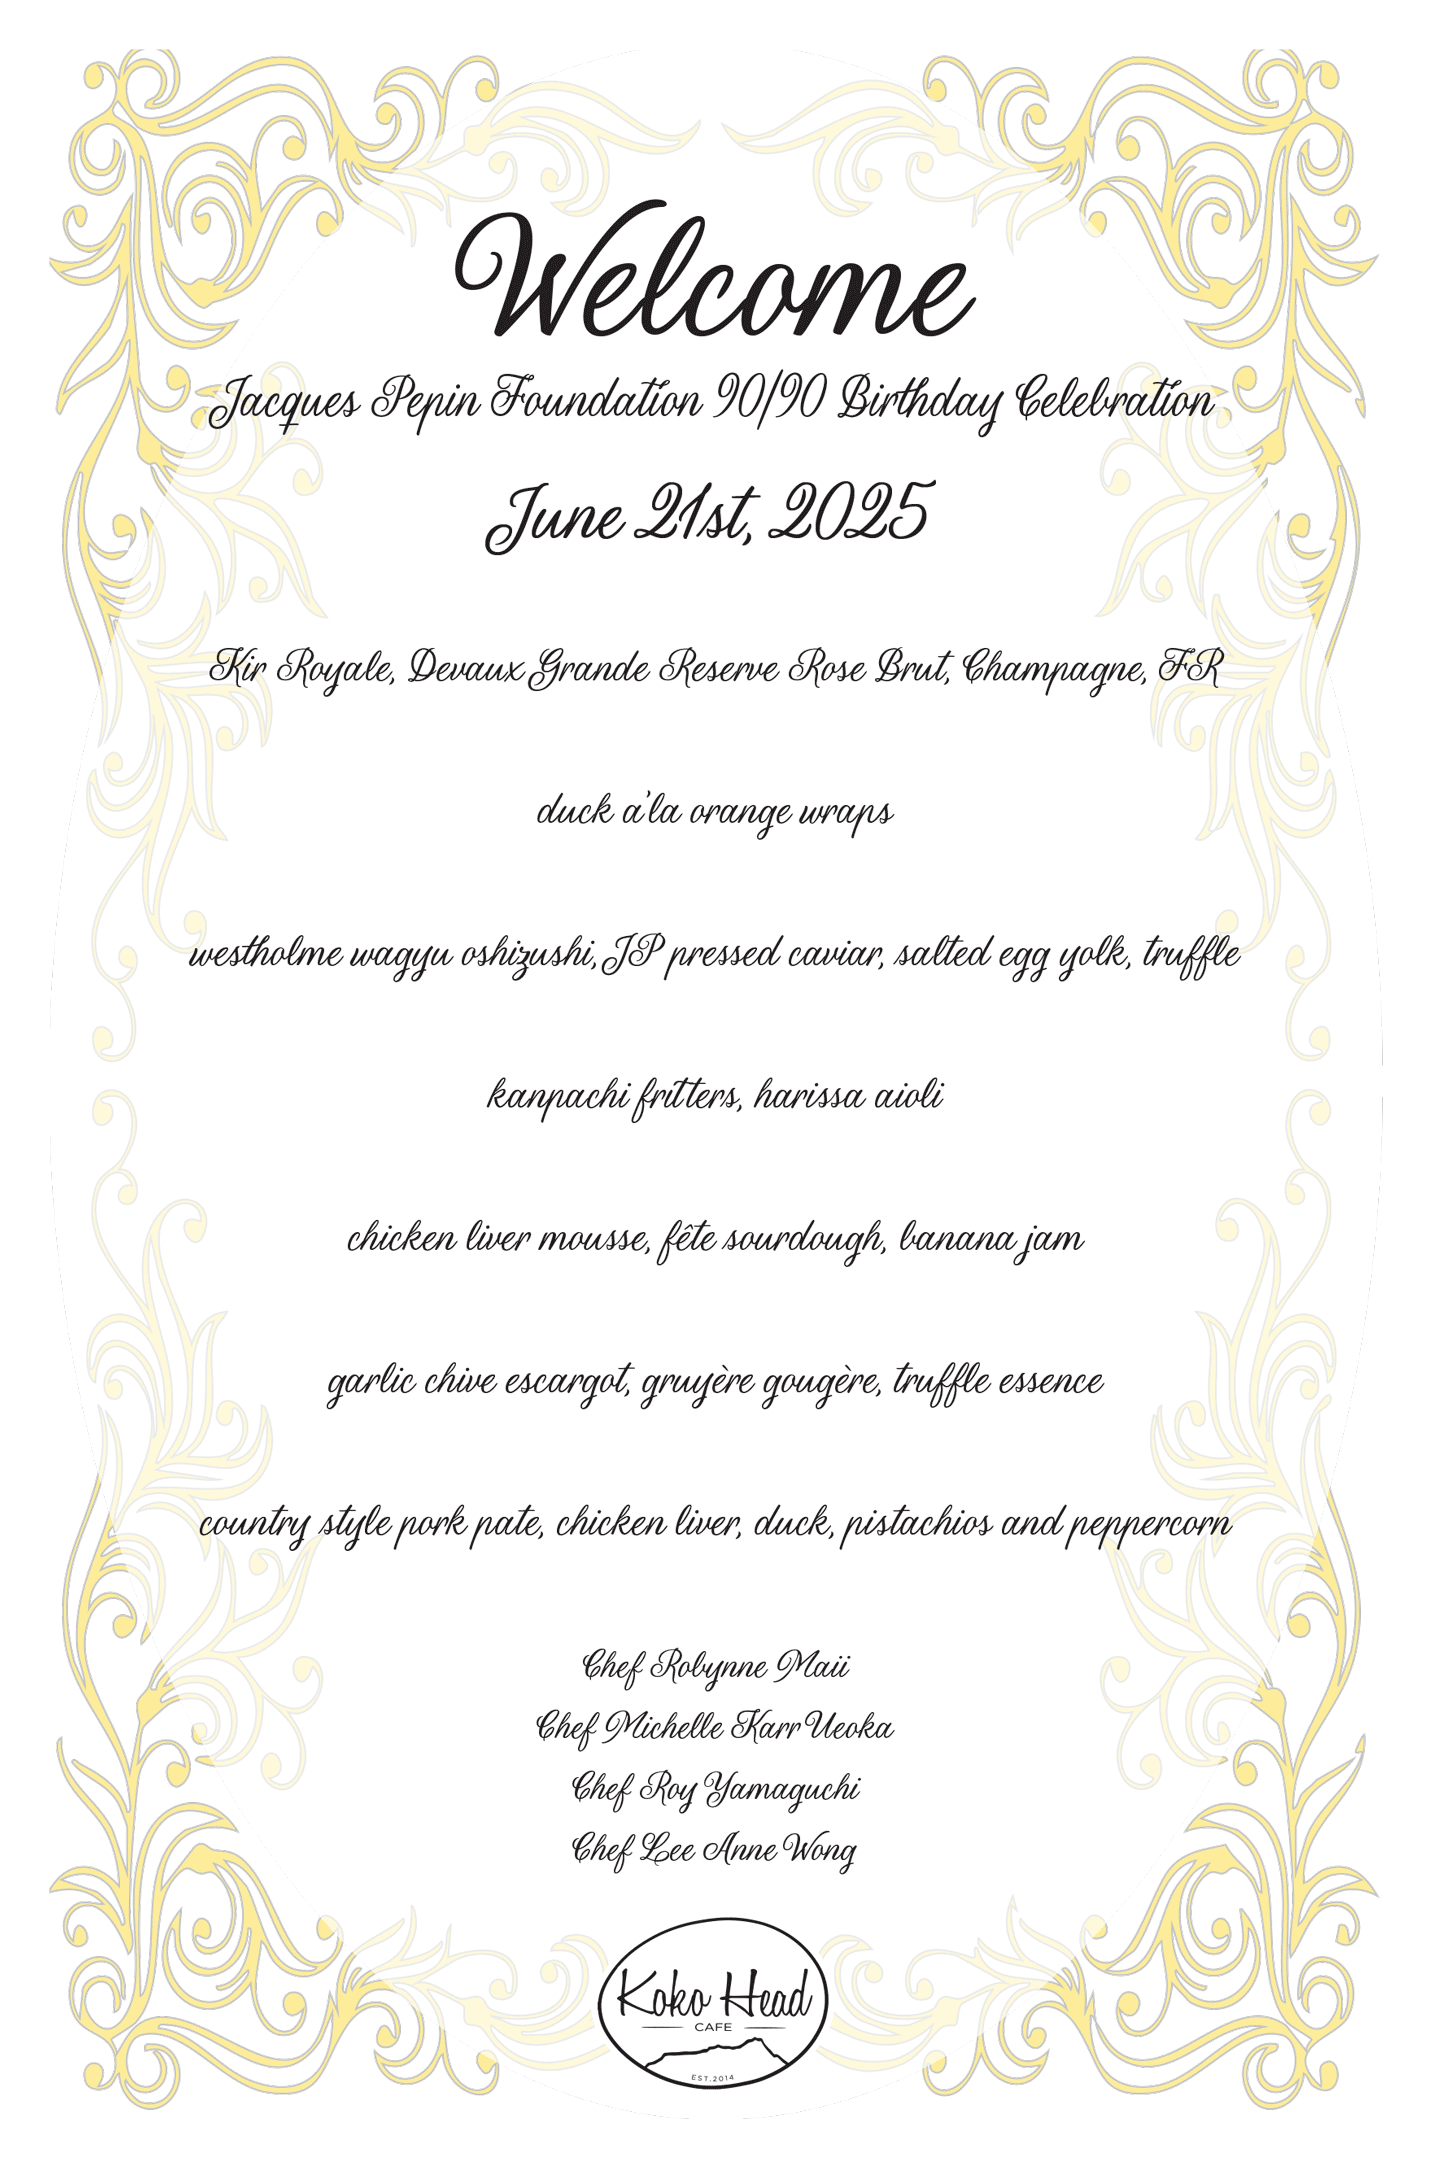 Welcome
Jacques Pepin Foundation 90/90 Birthday Celebration
June 21st, 2025
Kir Royale, Devaux Grande Reserve Rose Brut, Champagne, FR
duck a'la orange wraps
westholme wagyu oshizushi, JP pressed caviar, salted egg yolk, truffle
kanpachi fritters, harissa aioli
chicken liver mousse, fête sourdough, banana jam
garlic chive escargot, gruyère gougère, truffle essence
country style pork pate, chicken liver, duck, pistachios and peppercorn
Chef Robynne Maii
Chef Michelle Karr Ueoka
Chef Roy Yamaguchi
Chef Lee Anne Wong
Koko Head
CAFE
EST.2014